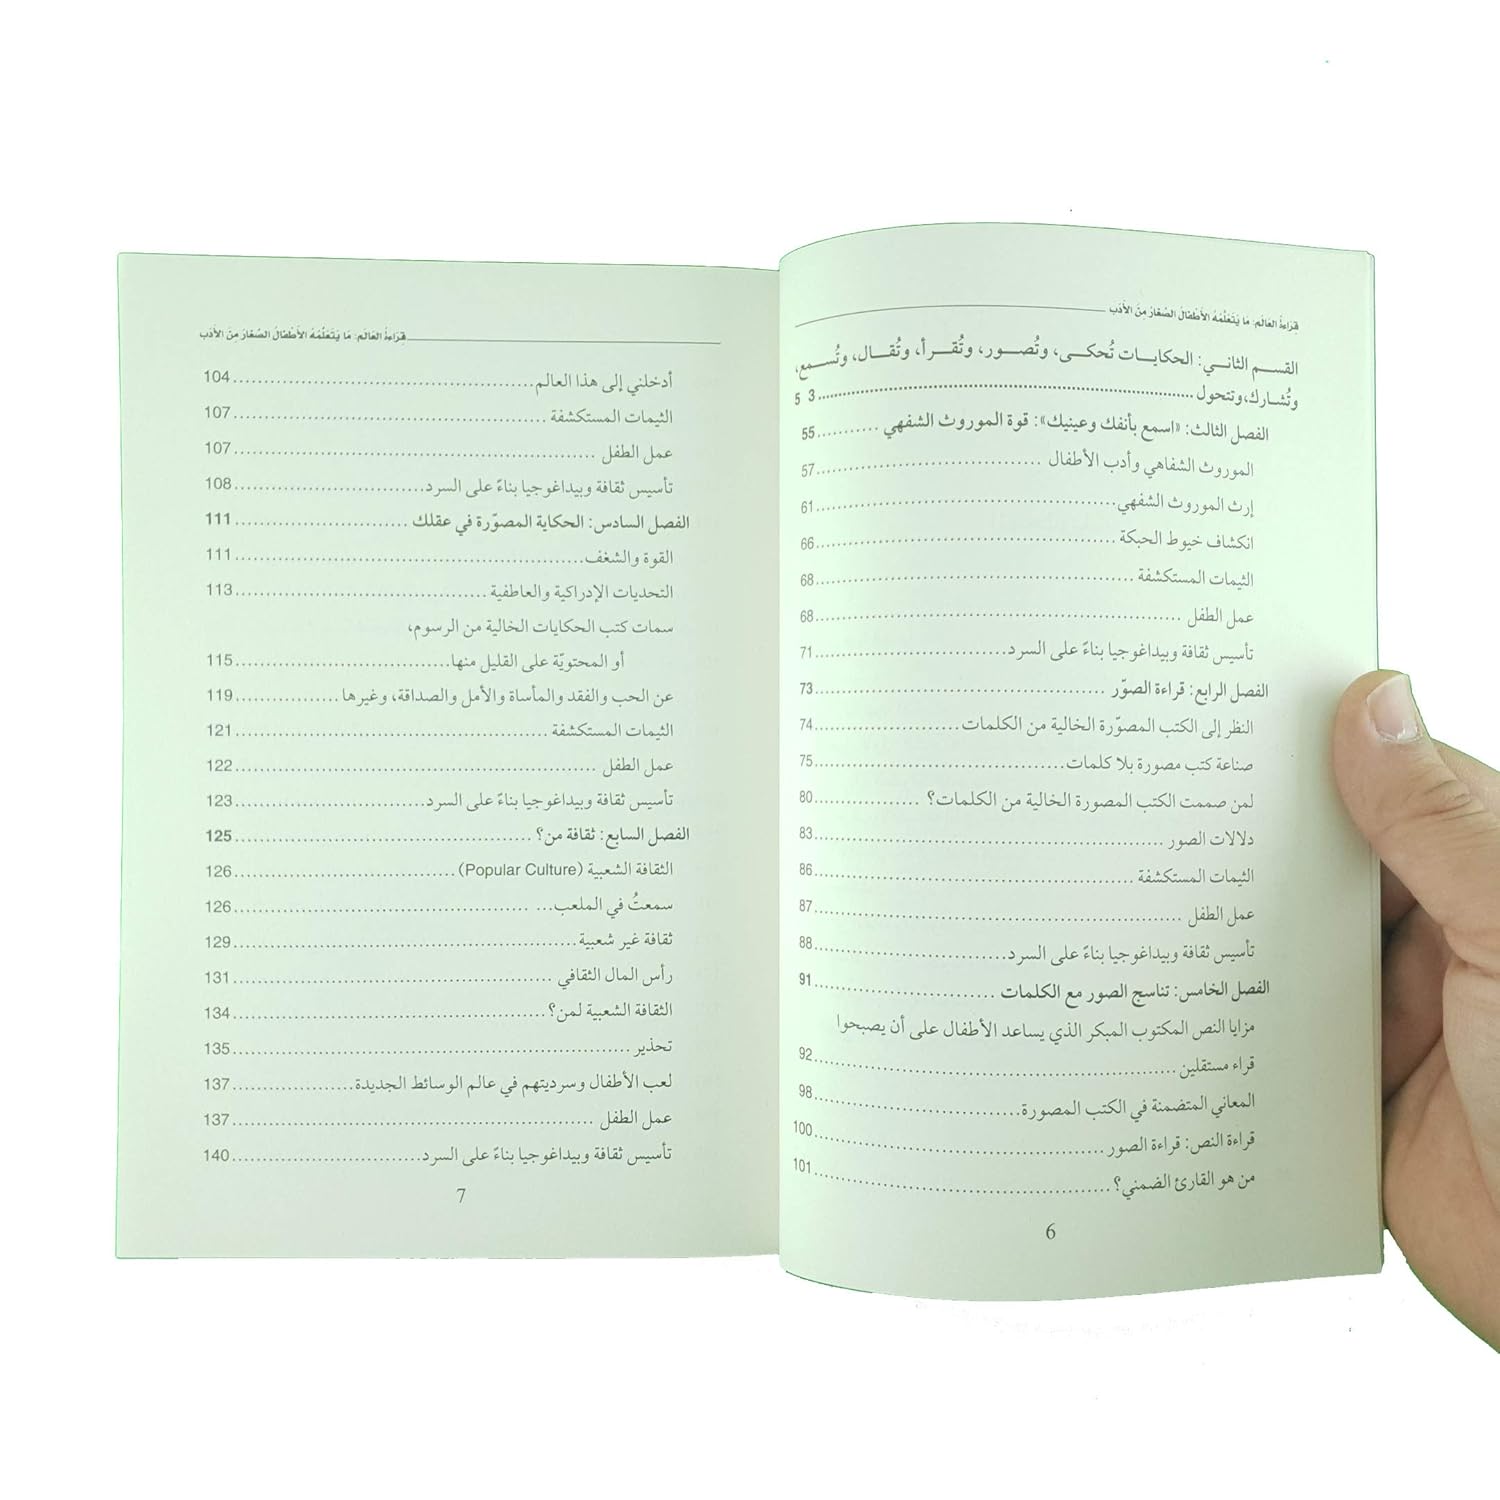 قراءةُ العَالَم: مَا يَتَعَلَّمُهُ الأَطْفالُ الصِّغارُ مِنَ الأَدَب
القسم الثاني: الحكايات تُحكى، وتُصور، وتُقرأ، وتُقال، وتُسمع،
وتُشارك،وتتحول ........ 3 5
الفصل الثالث: «اسمع بأنفك وعينيك»: قوة الموروث الشفهي ........ 55
الموروث الشفاهي وأدب الأطفال ........ 57
إرث الموروث الشفهي ........ 61
انكشاف خيوط الحبكة ........ 66
الثيمات المستكشفة ........ 68
عمل الطفل ........ 68
تأسيس ثقافة وبيداغوجيا بناءً على السرد ........ 71
الفصل الرابع: قراءة الصوّر ........ 73
النظر إلى الكتب المصوّرة الخالية من الكلمات ........ 74
صناعة كتب مصورة بلا كلمات ........ 75
لمن صممت الكتب المصورة الخالية من الكلمات؟ ........ 80
دلالات الصور ........ 83
الثيمات المستكشفة ........ 86
عمل الطفل ........ 87
تأسيس ثقافة وبيداغوجيا بناءً على السرد ........ 88
الفصل الخامس: تناسج الصور مع الكلمات ........ 91
مزايا النص المكتوب المبكر الذي يساعد الأطفال على أن يصبحوا
قراء مستقلين ........ 92
المعاني المتضمنة في الكتب المصورة ........ 98
قراءة النص: قراءة الصور ........ 100
من هو القارئ الضمني؟ ........ 101
6
قراءةُ العَالَم: مَا يَتَعَلَّمُهُ الأَطْفالُ الصِّغارُ مِنَ الأَدَب
أدخلني إلى هذا العالم ........ 104
الثيمات المستكشفة ........ 107
عمل الطفل ........ 107
تأسيس ثقافة وبيداغوجيا بناءً على السرد ........ 108
الفصل السادس: الحكاية المصوّرة في عقلك ........ 111
القوة والشغف ........ 111
التحديات الإدراكية والعاطفية ........ 113
سمات كتب الحكايات الخالية من الرسوم،
أو المحتويّة على القليل منها ........ 115
عن الحب والفقد والمأساة والأمل والصداقة، وغيرها ........ 119
الثيمات المستكشفة ........ 121
عمل الطفل ........ 122
تأسيس ثقافة وبيداغوجيا بناءً على السرد ........ 123
الفصل السابع: ثقافة من؟ ........ 125
الثقافة الشعبية (Popular Culture) ........ 126
سمعتُ في الملعب... ........ 126
ثقافة غير شعبية ........ 129
رأس المال الثقافي ........ 131
الثقافة الشعبية لمن؟ ........ 134
تحذير ........ 135
لعب الأطفال وسرديتهم في عالم الوسائط الجديدة ........ 137
عمل الطفل ........ 137
تأسيس ثقافة وبيداغوجيا بناءً على السرد ........ 140
7